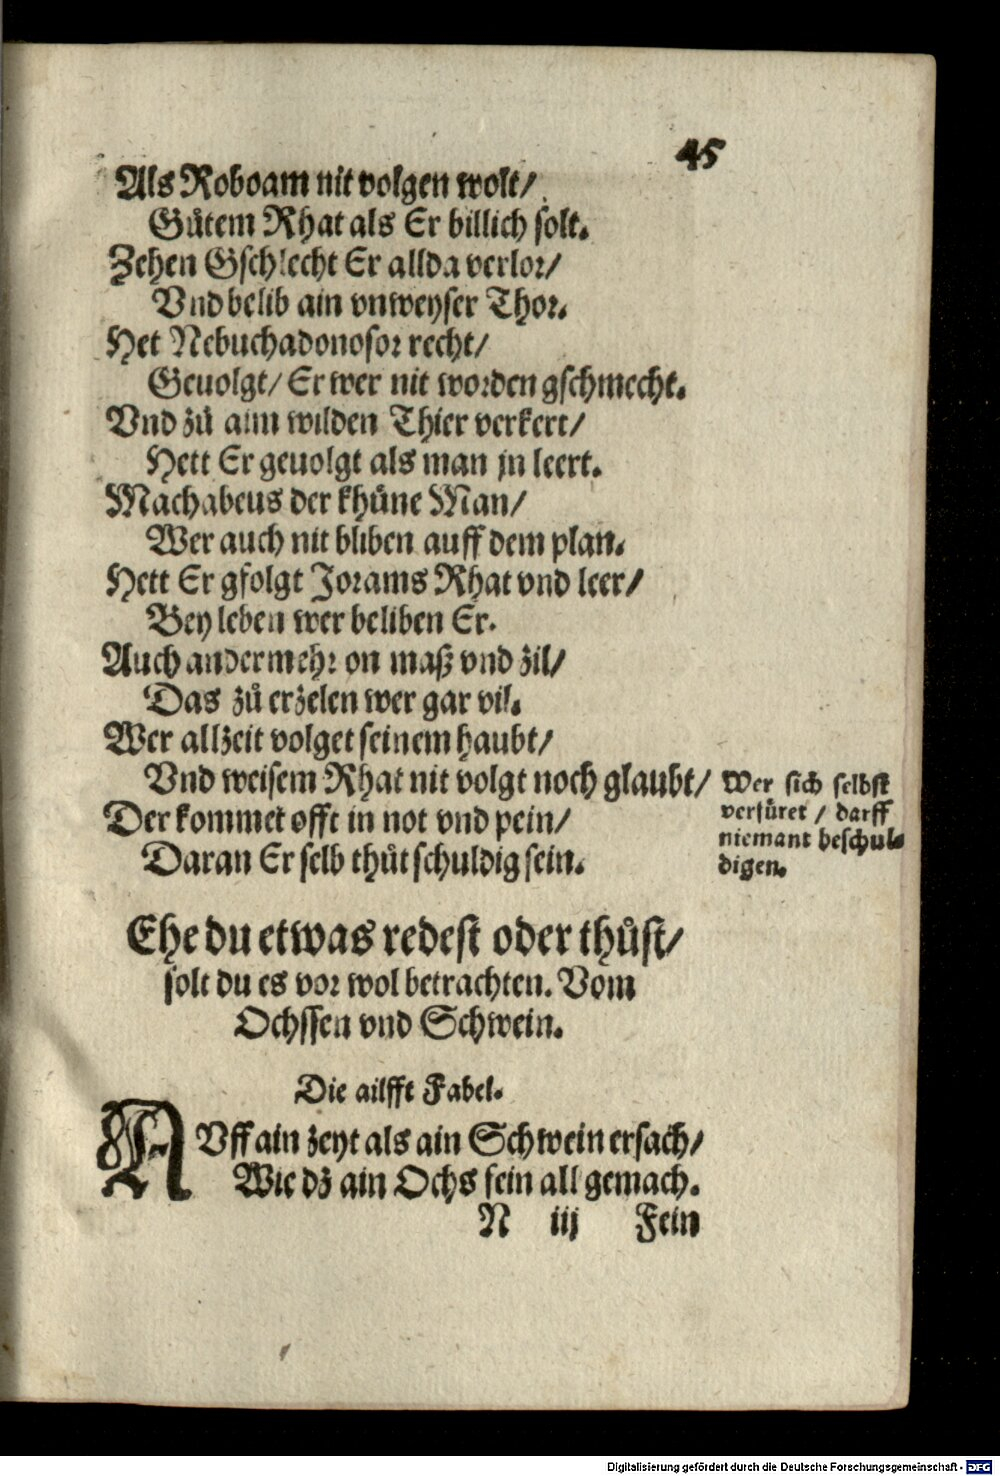 45
Als Roboam nit volgen wolt/
Gůtem Rhat als Er billich solt.
Zehen Gschlecht Er allda verlor/
Vnd belib ain vnweyser Thor.
Het Nebuchadonosor recht/
Geuolgt/ Er wer nit worden gschmecht.
Vnd zů aim wilden Thier verkert/
Hett Er geuolgt als man jn leert.
Machabeus der khüne Man/
Wer auch nit bliben auff dem plan.
Hett Er gfolgt Jorams Rhat vnd leer/
Bey leben wer beliben Er.
Auch ander mehr on maß vnd zil/
Das zů erzelen wer gar vil.
Wer allzeit volget seinem haubt/
Vnd weisem Rhat nit volgt noch glaubt/
Der kommet offt in not vnd pein/
Daran Er selb thůt schuldig sein.
Wer sich selbst
verfüret / darff
niemant beschul-
digen.
Ehe du etwas redest oder thůst/
solt du es vor wol betrachten. Vom
Ochssen vnd Schwein.
Die ailfft Fabel.
AVff ain zeyt als ain Schwein ersach/
Wie dz ain Ochs sein all gemach.
N iij Fein
Digitalisierung gefördert durch die Deutsche Forschungsgemeinschaft - DFG